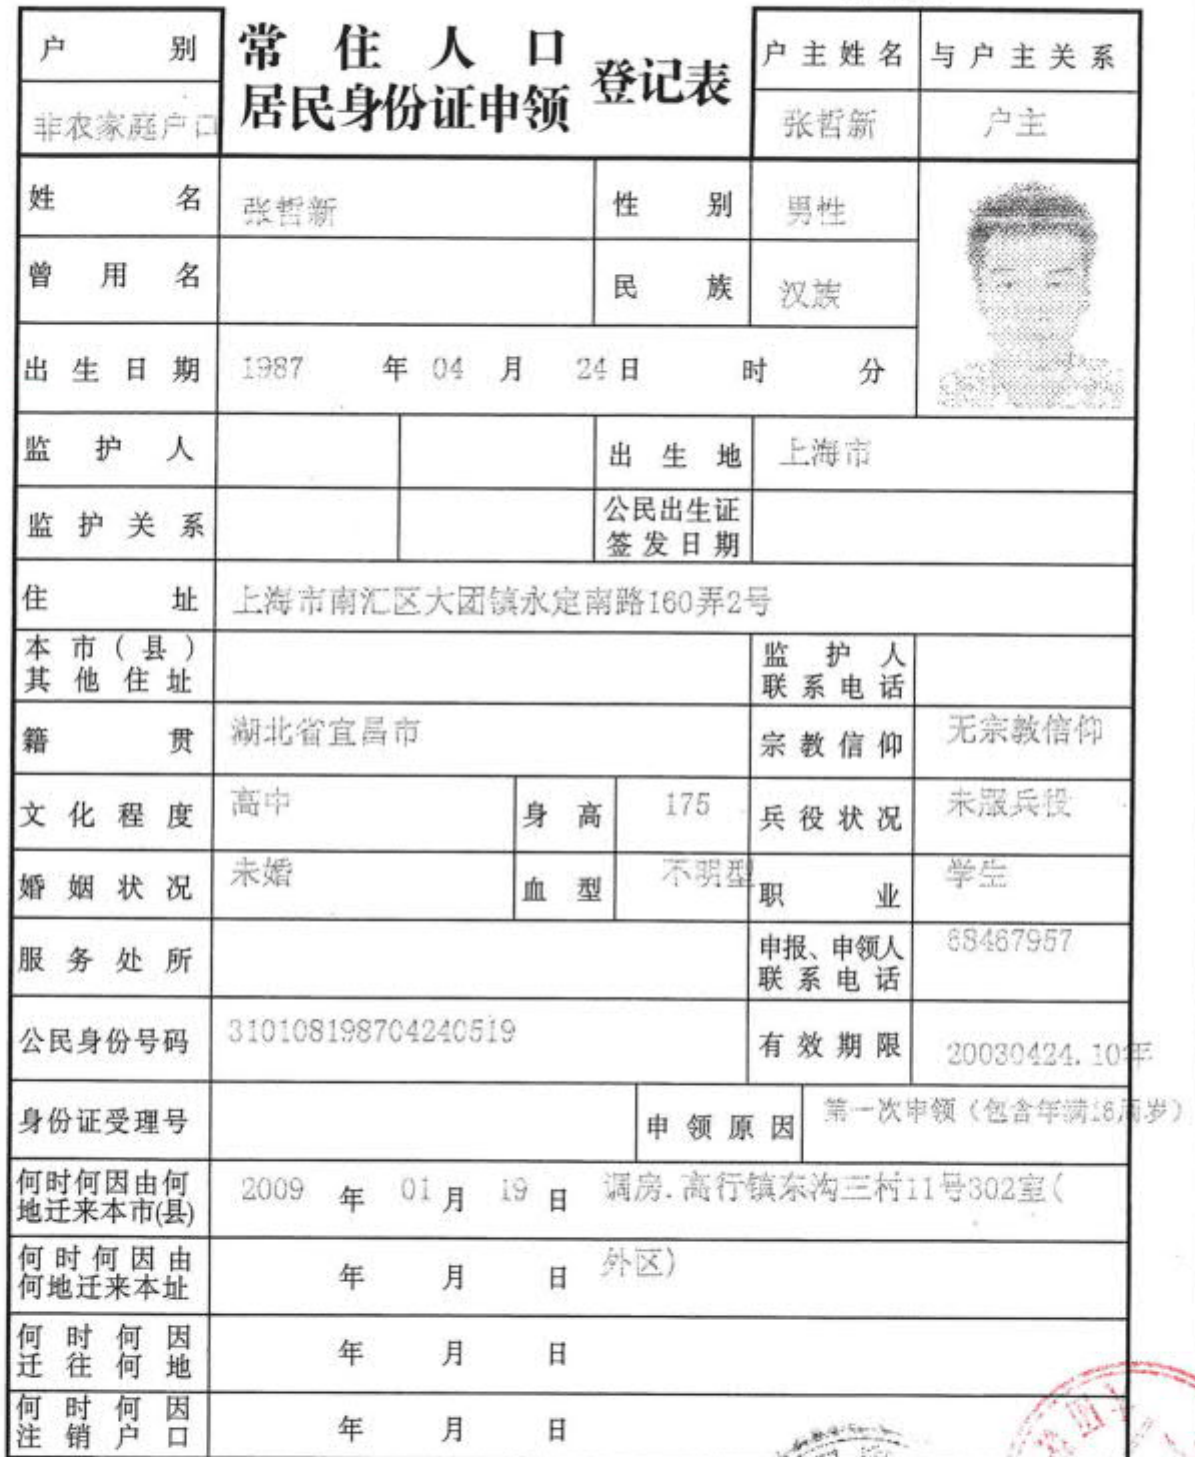 户别
常住人口
居民身份证申领
登记表
户主姓名 与户主关系
非农家庭户口 张哲新 户主
姓名 张哲新 性别 男性
曾用名 民族 汉族
出生日期 1987 年 04 月 24 日 时 分
监护人 出生地 上海市
监护关系 公民出生证
签发日期
住址 上海市南汇区大团镇永定南路160弄2号
本市(县)
其他住址
监护人
联系电话
籍贯 湖北省宜昌市 宗教信仰 无宗教信仰
文化程度 高中 身高 175 兵役状况 未服兵役
婚姻状况 未婚 血型 不明型 职业 学生
服务处所 申报、申领人
联系电话
68467957
公民身份号码 310108198704240519 有效期限 20030424.10年
身份证受理号 申领原因 第一次申领(包含年满16周岁)
何时何因由何
地迁来本市(县)
2009 年 01 月 19 日 调房.高行镇东沟三村11号302室(
外区)
何时何因由
何地迁来本址
年 月 日
何时何因
迁往何地
年 月 日
何时何因
注销户口
年 月 日